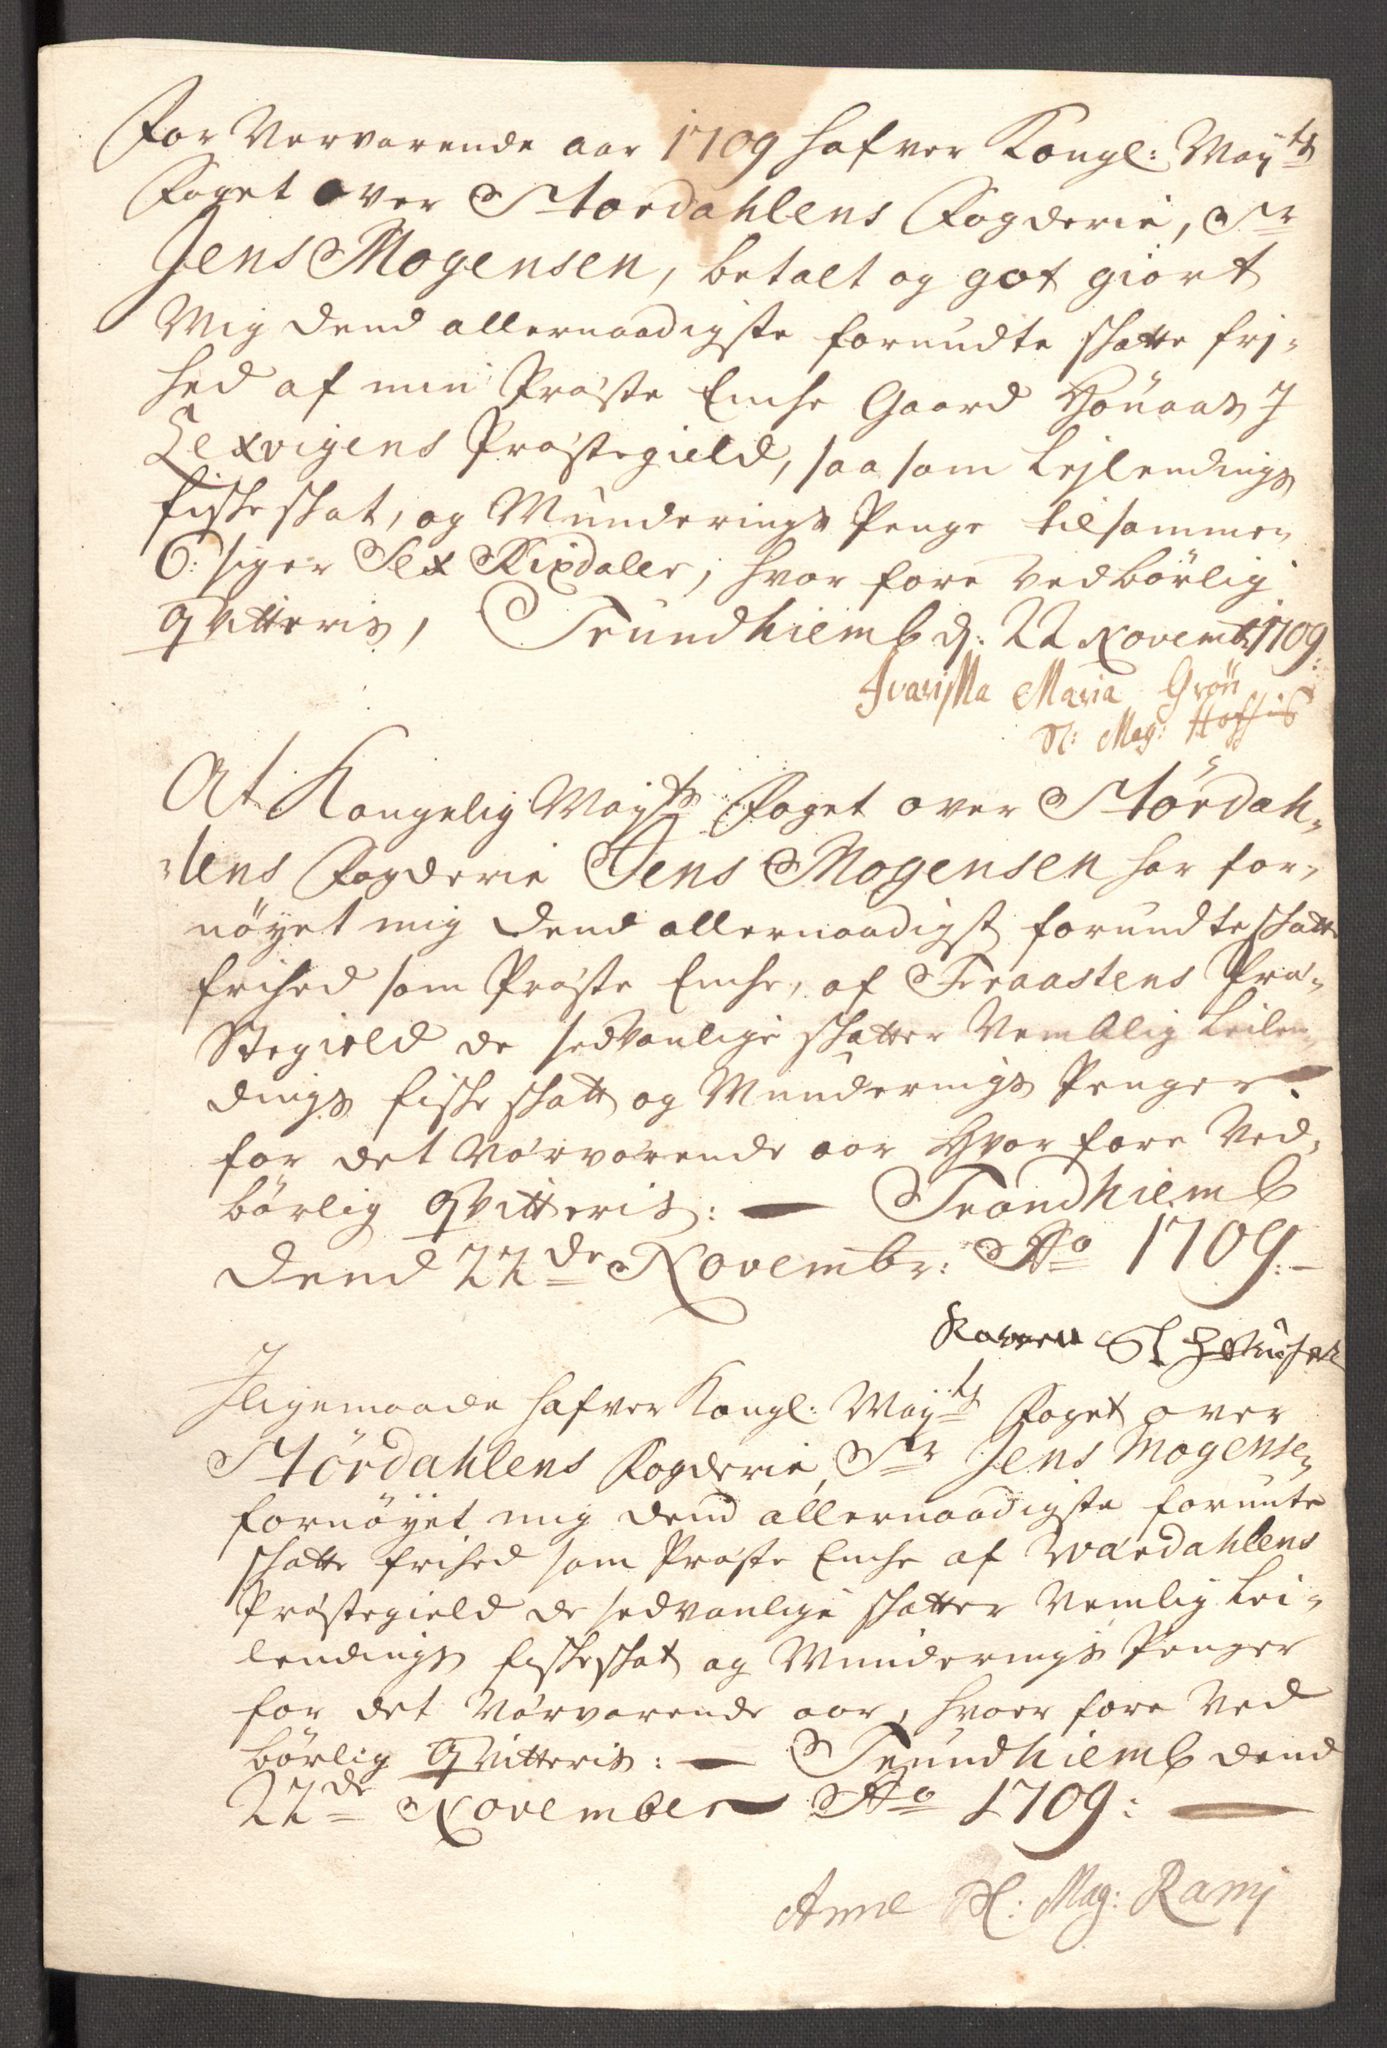 For Verværende aar 1709 hafver Kongl: May:ts
Foget over Størdahlens Fogderie, Sr
Jens Mogensen, betalt og got giort
Mig dend allernaadigste forundte skatte frj-
hed af min Præste Enche Gaard Hönaas J
Lexvigens Præstegield, saa som Lejlendings
fiske skat, og Munderings Penge tilsammen
6: siger Sex Rixdaler, hvor fore vedbörlig
qvitteris, Trundhiemb d: 22 Novemb: 1709:
Maria Grön
Sl: Mag: Hofhis
At Kongelig Mayts Foget over Størdah-
lens Fogderie Jens Mogensen har for-
nöyet mig dend allernaadigst forundte skatte
frihed som Præste Enche, af Fraastens Præ-
stegield de sedvanlige skatter Nemblig Leilen
dings fiske skatt og Munderings Penger
for det Værværende aar Hvor fore Ved-
börlig qvitteris: Trondhiemb
dend 22de Novembr: Ao 1709:
Karen Sl
Jligemaade hafver Kongl: Mayts Foget over
Størdahlens Fogderie, Sr Jens Mogensen
fornöyet mig dend allernaadigste forunte
skatte frihed som Præste Enche af Værdahlens
Præstegield de sedvanlige skatter Nemlig Lei-
lendings fiskeskat og Munderings Penger
for det Værværende aar, hvor fore Ved
börlig qvitteris: Trundhiemb dend
22de November Ao 1709:
Anne Sl: Mag: Rams